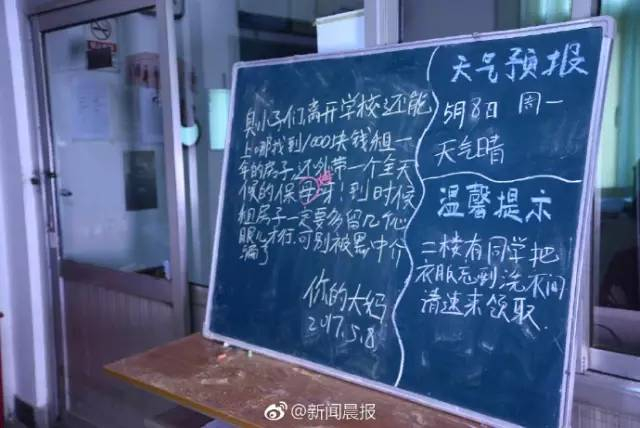 臭小子们,离开学校还能
上哪找到1000块钱租一
年的房子,还外带一个全天
候的保母呀!到时候
租房子一定要多留几个心
眼儿才行,可别被黑中介
骗了
你的大妈
2017.5.8
天气预报
5月8日 周一
天气晴
温馨提示
二楼有同学把
衣服忘到洗衣间
请速来领取.
@新闻晨报